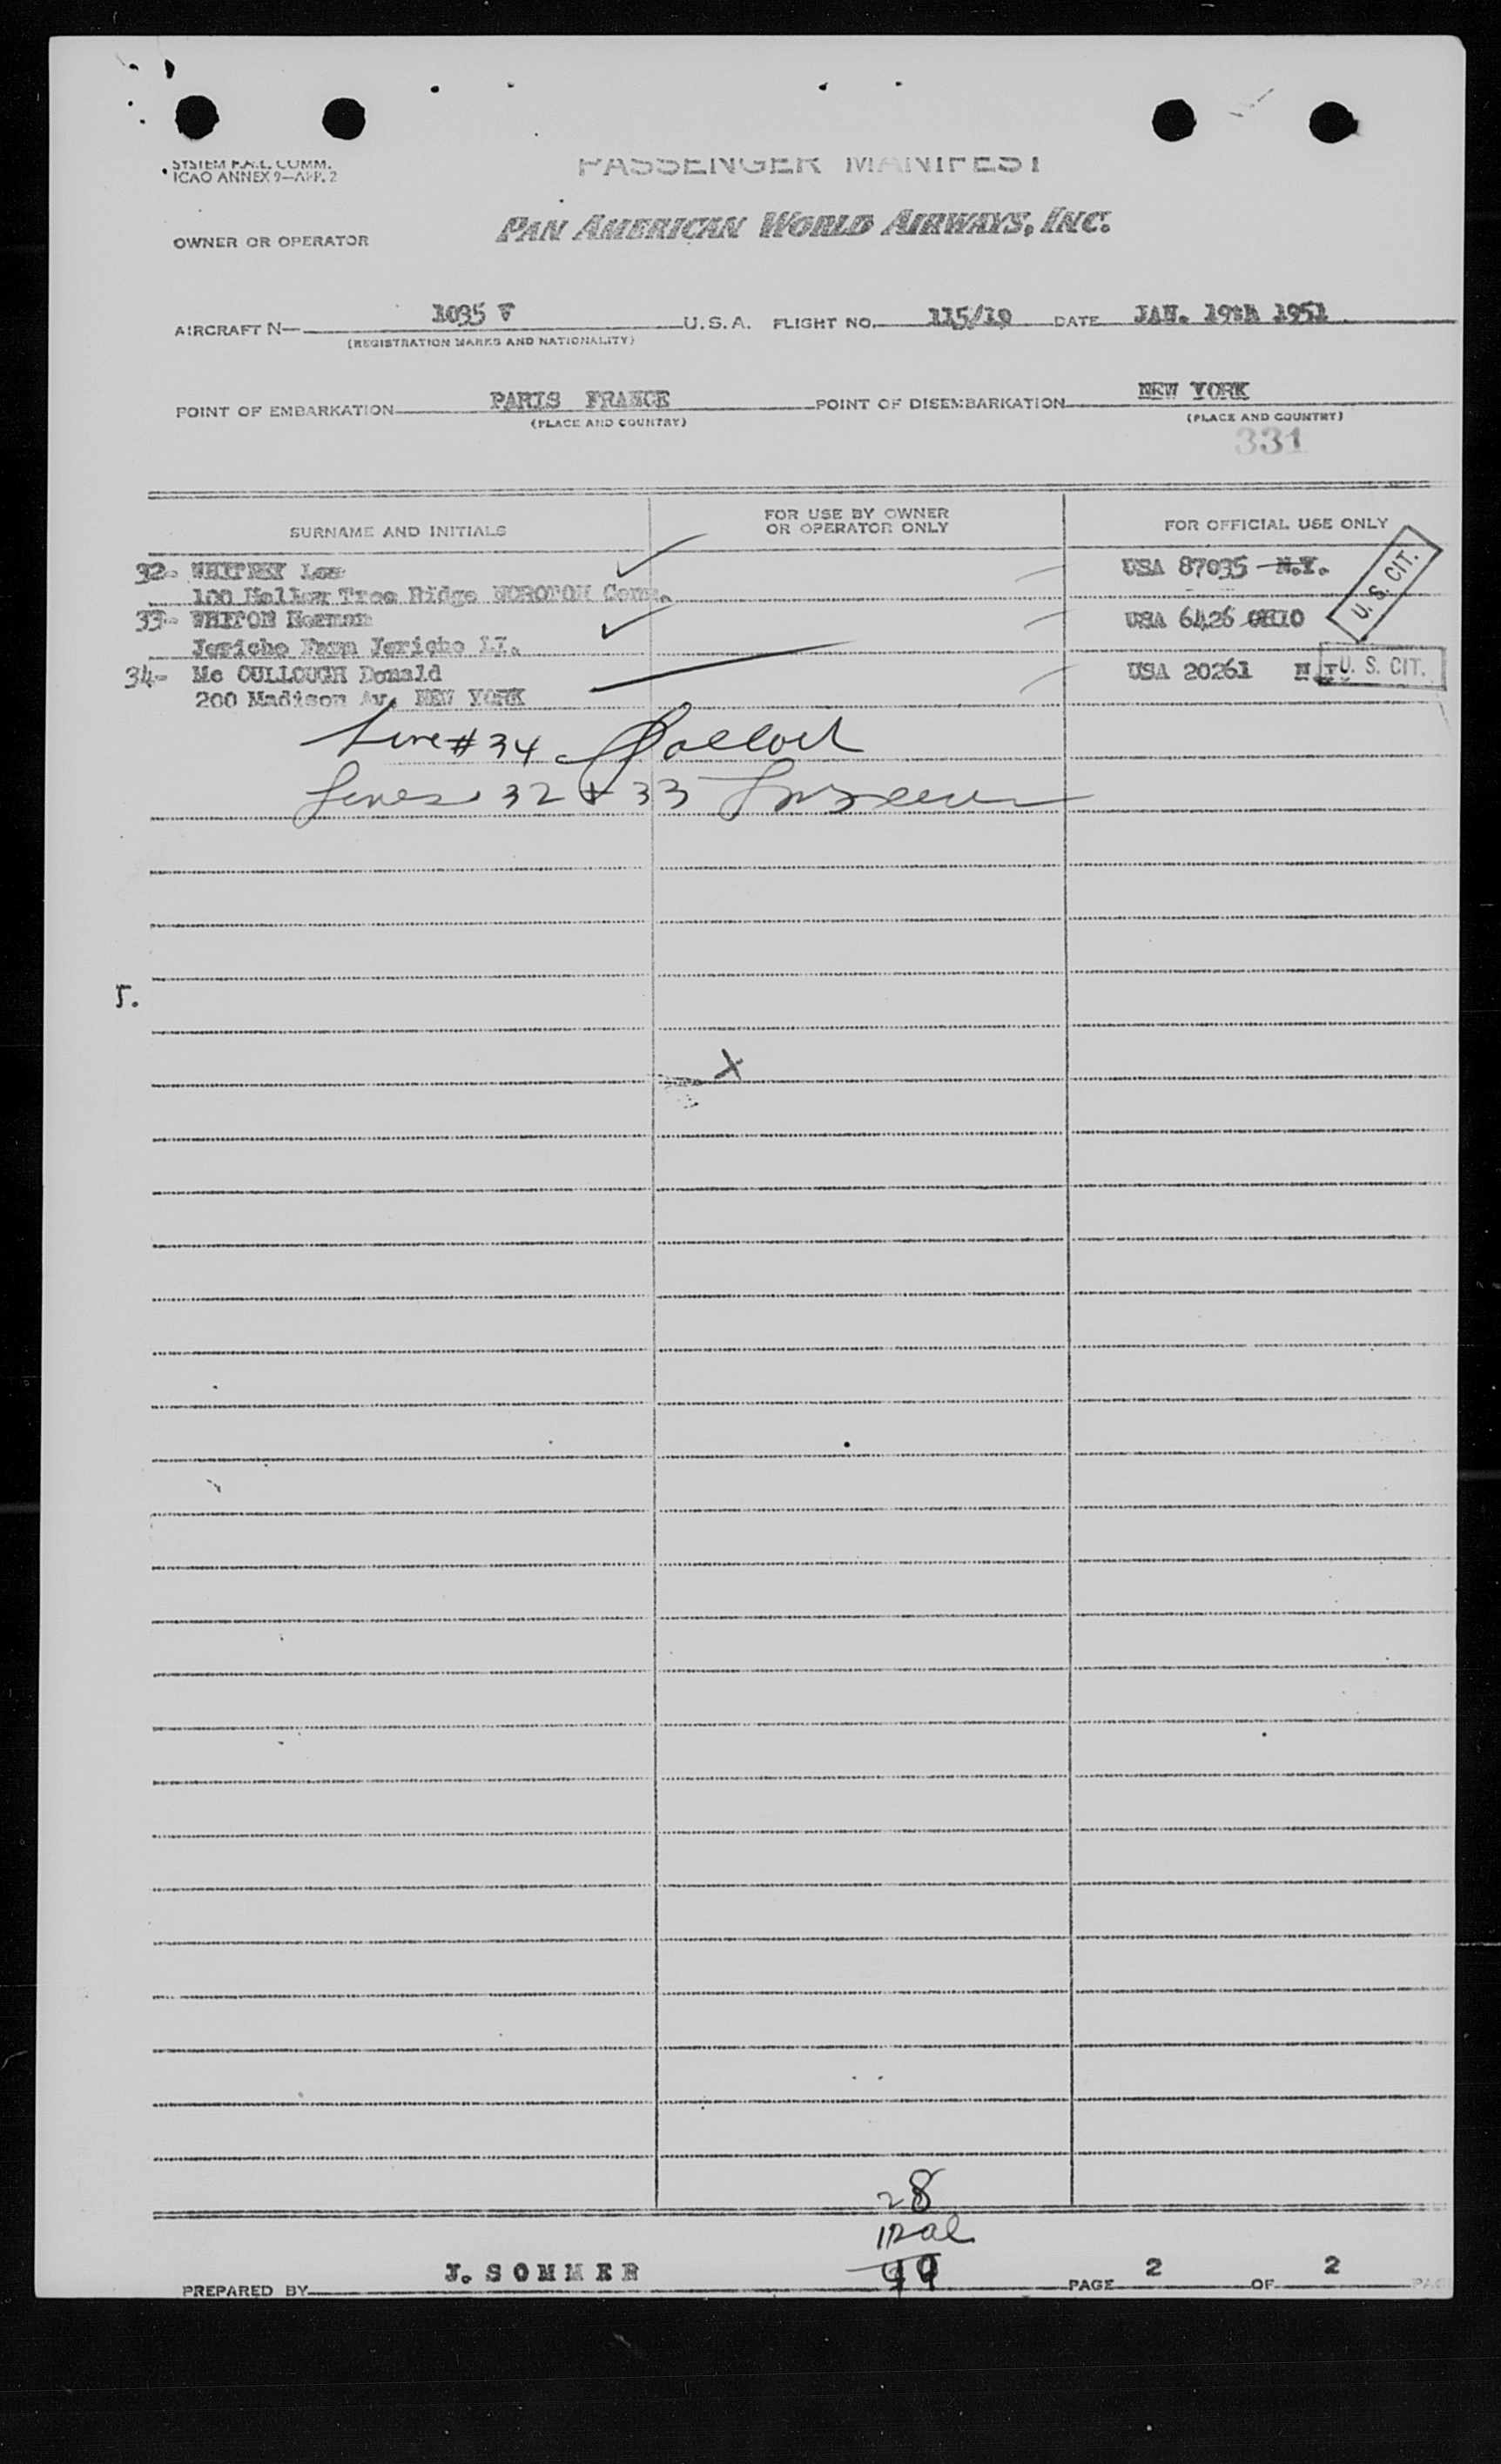 SYSTEM F.A.L. COMM.
ICAO ANNEX 9—APP. 2
PASSENGER MANIFEST
OWNER OR OPERATOR PAN AMERICAN WORLD AIRWAYS, INC.
AIRCRAFT N— 1035 V U.S.A. FLIGHT NO. 115/19 DATE JAN. 19th 1951
(REGISTRATION MARKS AND NATIONALITY)
POINT OF EMBARKATION PARIS FRANCE POINT OF DISEMBARKATION NEW YORK
(PLACE AND COUNTRY) (PLACE AND COUNTRY)
331
SURNAME AND INITIALS FOR USE BY OWNER OR OPERATOR ONLY FOR OFFICIAL USE ONLY
32- WHITNEY USA 87035 N.Y. U. S. CIT.
100 Hollow Tree Ridge NOROTON Conn.
33- WHITON Norman USA 6426 OHIO
Jericho Farm Jericho LI.
34- Mc CULLOUGH Donald USA 20261 U. S. CIT.
200 Madison Av. NEW YORK
Line # 34
Lines 32 + 33
X
28
99
PREPARED BY J. SOMMER PAGE 2 OF 2